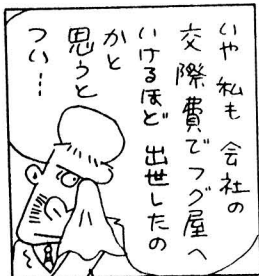 いや 私も 会社の
交際費でフグ屋へ
いけるほど 出世したの
かと
思うと
つい…